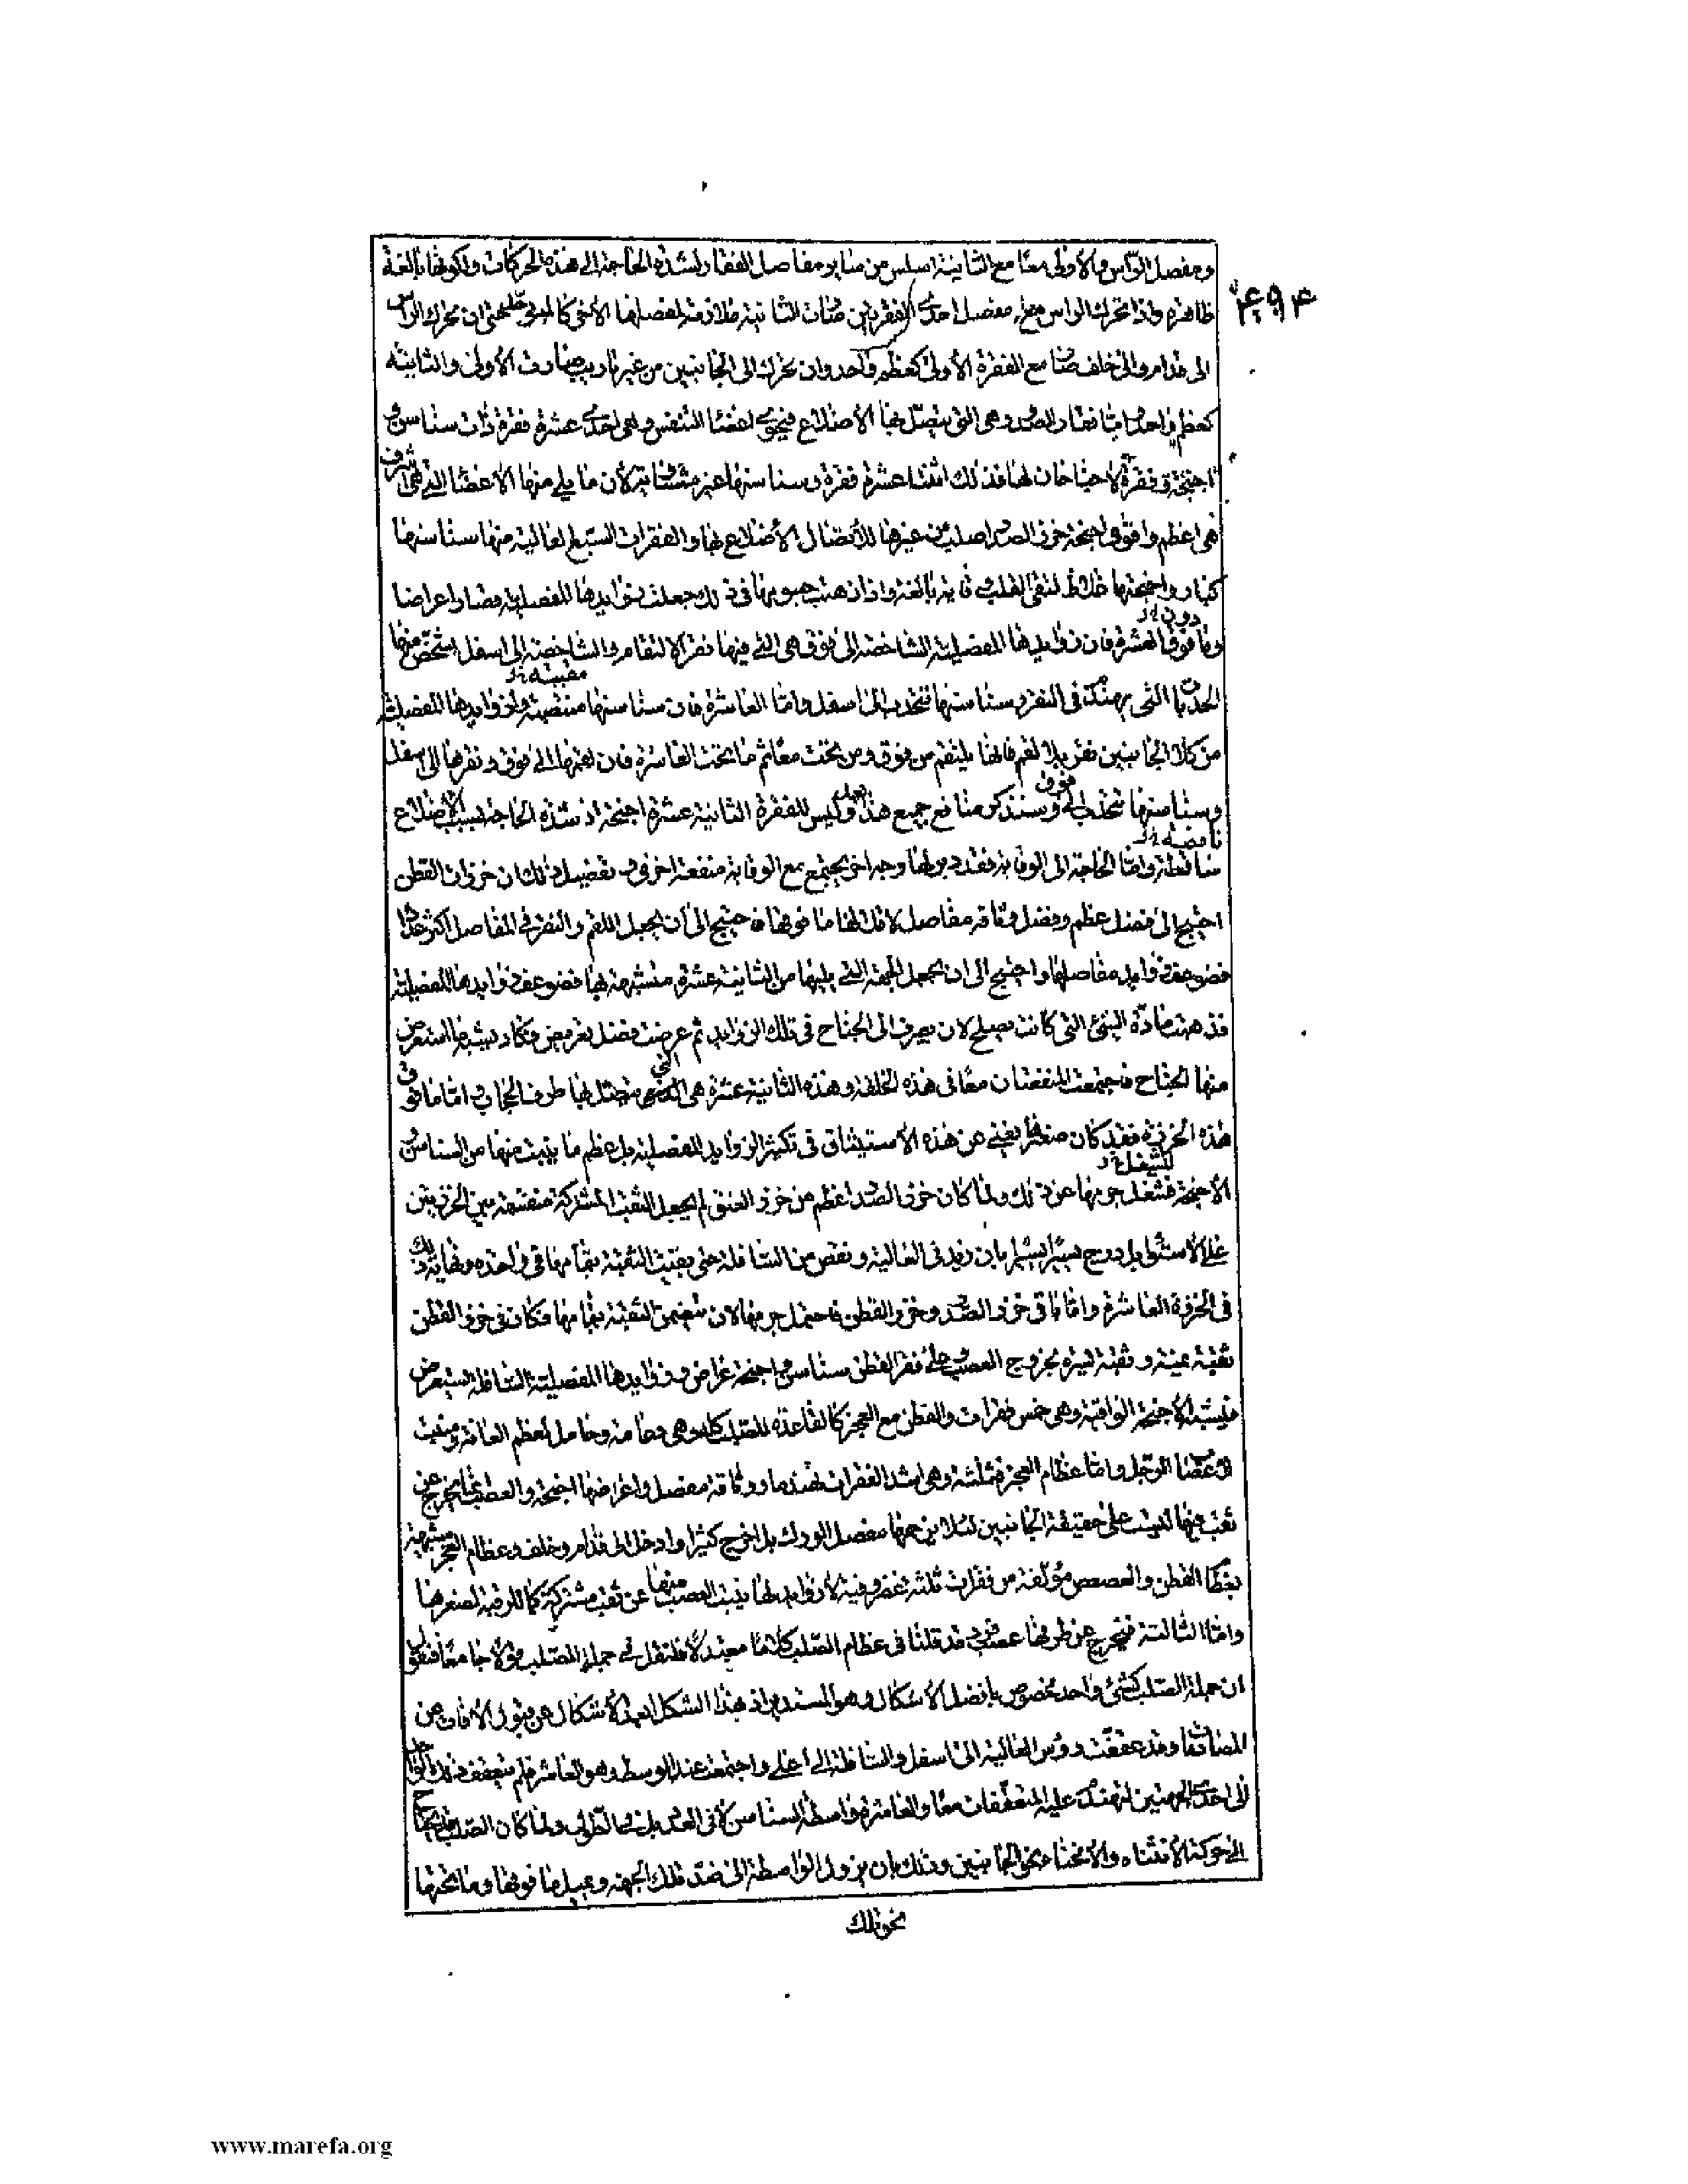 ومفصل الراس والاولى معا مع الثانية اسلس من ساير مفاصل الفقار لشدة الحاجة الى هذه الحركات ولكونها بالغة
ظاهرة واذا تحرك الراس مع مفصل احدى الفقرتين صارت الثانية ملازمة لمفصلها الاخر كالمتوحد حتى ان تحرك الراس
الى قدام والى خلف صار مع الفقرة الاولى كعظم واحد وان تحرك الى الجانبين من غير تاريب صارت الاولى والثانية
كعظم واحد واما فقار الصدر وهى التى يتصل بها الاضلاع فيحوى اعضا التنفس وهى احدى عشرة فقرة ذات سناسن و
اجنحة وفقرة لا جناحان لها فذلك اثنتا عشرة فقرة وسناسنها غير متشابه لان ما يلى منها الاعضا التى هى اشرف
هى اعظم واقوى واجنحة خرز الصدر اصلب من غيرها لاتصال الاضلاع بها والفقرات السبع العالية منها سناسنها
كبار واجنحتها غلاظ لتقى القلب وقاية بالغة واذا ذهب جسومها فى ذلك جعلت زوايدها المفصلية قصارا عراضا
دون
وما فوق العشرة فان زوايدها المفصلية الشاخصة الى فوق هى التى فيها نقر الالتقام والشاخصة الى اسفل يشخص منها
مقببة
الحدبات التى يهندم فى النقر وسناسنها تنحدب الى اسفل واما العاشرة فان سناسنها منتصبة ولزوايدها المفصلية
من كلا الجانبين نقر بلا لقم فانها يلتقم من فوق ومن تحت معا ثم ما تحت العاشرة فان لقمها الى فوق ونقرها الى اسفل
فوق
وسناسنها تنحدب الى وسنذكر منافع جميع هذا بعد وليس للفقرة الثانية عشرة اجنحة اذ شدة الحاجة بسبب الاضلاع
ناقصة
ساقطة واما الحاجة الى الوقاية فقد دبر لها وجه اخر يجتمع مع الوقاية منفعة اخرى وتفصيل ذلك ان خرزات القطن
احتيج الى فضل عظم وفضل وثاقة مفاصل لاقلالها ما فوقها فاحتيج الى ان يجعل اللقم والنقر فى المفاصل اكثر عددا
فضوعف زوايد مفاصلها واحتيج الى ان يجعل الجهة التى يليها من الثانية عشرة متشبهة بها فضوعف زوايدها المفصلية
فذهبت مادة الشئ التى كانت يصلح لان يصرف الى الجناح فى تلك الزوايد ثم عرضت فضل تعريض فكاد يشبه ما استعرض
منها الجناح فاجتمعت المنفعتان معا فى هذه الخلقة وهذه الثانية عشرة هى التى يتصل بها طرف الحجاب واما ما فوق
هذه الخرزة فقد كان صغرها يغنى عن هذه الاستيثاق فى تكثير الزوايد المفصلية بل عظم ما ينبت منها من السناسن و
الاجنحة فشغل جرمها عن ذلك ولما كان خرز الصدر اعظم من خرز العنق لم يجعل الثقبة المشتركة منقسمة بين الخرزتين
على الاستوا بل درج يسيرا يسيرا بان زيد فى العالية ونقص من السافلة حتى بقيت الثقبة بتمامها فى واحدة ونهاية ذلك
فى الخرزة العاشرة واما باقى خرز الصدر وخرز القطن فاحتمل جرمها لان يتضمن الثقبة بتمامها فكان فى خرز القطن
ثقبة يمنة وثقبة يسرة لخروج العصب على فقر القطن سناسن واجنحة عراض وزوايدها المفصلية السافلة يستعرض
فيشبه الاجنحة الواقية وهى خمس فقرات والقطن مع العجز كالقاعدة للصلب كله وهى دعامة وحامل لعظم العانة ومنبت
لاعصاب الرجل واما عظام العجز فثلثة وهى اشد الفقرات تهندما ووثاقة مفصل واعراضها اجنحة والعصب انما يخرج عن
ثقب فيها ليست على حقيقة الجانبين لئلا يزحمها مفصل الورك بل اخرج كثيرا وادخل الى قدام وخلف وعظام العجز شبيهة
بعظام القطن والعصعص مؤلفة من فقرات ثلثة غضروفية لا زوايد لها ينبت العصب منها عن ثقب مشتركة كما للرقبة لصغرها
واما الثالثة فيخرج عن طرفها عصب فرد قد قلنا فى عظام الصلب كلاما معتدلا فلنقل فى جملة الصلب قولا جامعا فنقول
ان جملة الصلب كشئ واحد مخصوص بافضل الاشكال وهو المستدير اذ هذا الشكل ابعد الاشكال عن قبول الافات عن
المصادفات وقد تعقفت رؤس العالية الى اسفل والسافلة الى اعلى واجتمعت عند الوسط وهو العاشر فلم يتعقف ذلك الواحد
الى احدى الجهتين لتهندم عليه المتعقفات معا والعاشرة واسطة السناسن لا فى العدد بل فى الطول ولما كان الصلب يحتاج
الى حركة الانثناء والانحناء نحو الجانبين وذلك بان يزول الواسطة الى ضد تلك الجهة ويميل ما فوقها وما تحتها
نحو تلك
www.marefa.org